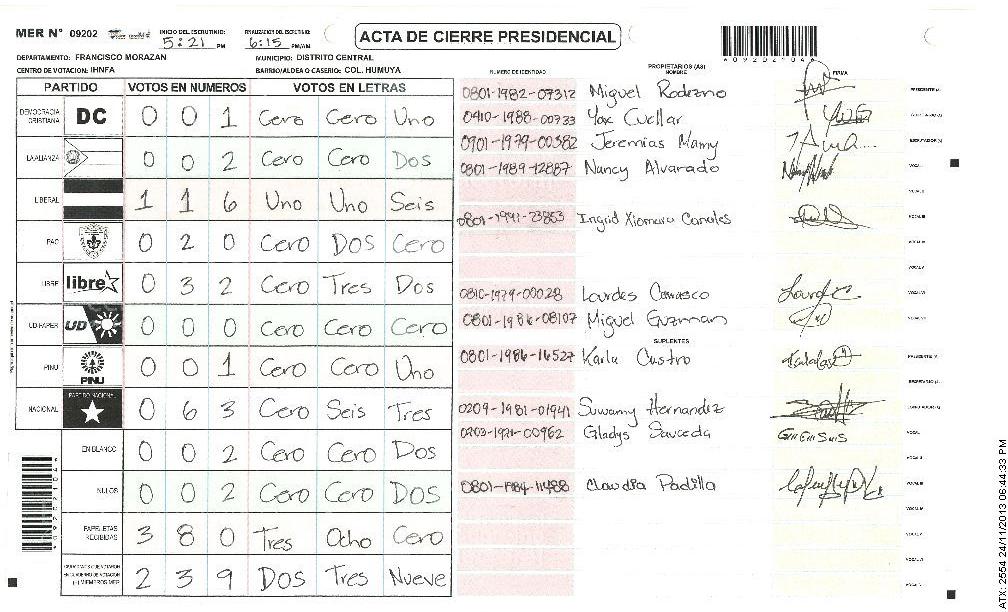 MER N° 09202 INICIO DEL ESCRUTINIO: 5:21 PM FINALIZACION DEL ESCRUTINIO: 6:15 PM/AM
ACTA DE CIERRE PRESIDENCIAL
DEPARTAMENTO: FRANCISCO MORAZAN MUNICIPIO: DISTRITO CENTRAL
CENTRO DE VOTACION: IHNFA BARRIO/ALDEA O CASERIO: COL. HUMUYA
PARTIDO VOTOS EN NUMEROS VOTOS EN LETRAS
DEMOCRACIA CRISTIANA DC 0 0 1 Cero Cero Uno
LA ALIANZA 0 0 2 Cero Cero Dos
LIBERAL 1 1 6 Uno Uno Seis
PAC 0 2 0 Cero DOS Cero
LIBRE libre 0 3 2 Cero Tres Dos
UD-FAPER UD 0 0 0 Cero Cero Cero
PINU PINU 0 0 1 Cero Cero Uno
NACIONAL PARTIDO NACIONAL 0 6 3 Cero Seis Tres
EN BLANCO 0 0 2 Cero Cero Dos
NULOS 0 0 2 Cero Cero DOS
PAPELETAS RECIBIDAS 3 8 0 Tres Ocho Cero
2 3 9 DOS Tres Nueve
NUMERO DE IDENTIDAD PROPIETARIOS (AS) NOMBRE FIRMA
0801-1982-07312 Miguel Rodezno
0910-1988-00733 Yax Cuellar
0901-1979-00382 Jeremias Mamy
0801-1989-12887 Nancy Alvarado
0801-1991-23853 Ingrid Xiomara Canales
0810-1979-00028 Lourdes Carrasco
0801-1986-08107 Miguel Guzman
SUPLENTES
0801-1986-16527 Karla Castro
0209-1981-01941 Suwamy Hernandez
0203-1971-00962 Gladys Sauceda
0801-1984-11488 Claudia Padilla
ATX: 2554 24/11/2013 06:44:33 PM